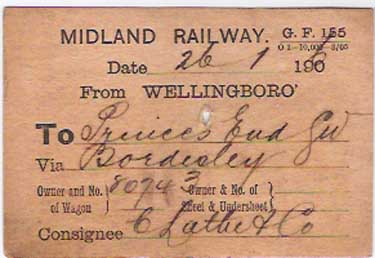 MIDLAND RAILWAY. G. F. 155
Date 26 1 1906
From WELLINGBORO'
To Princes End GW
Via Bordesley
Owner and No. of Wagon } 80743 Owner & No. of Sheet & Undersheet }
Consignee C Lathe & Co